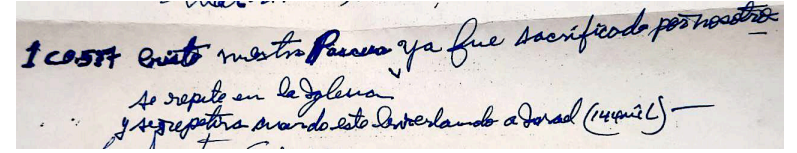 1 CO 5:7 Cristo nuestra Pascua ya fue sacrificado por nosotros
se repite en la Iglesia
y se repetira cuando este levantando a Israel (144 mil) —